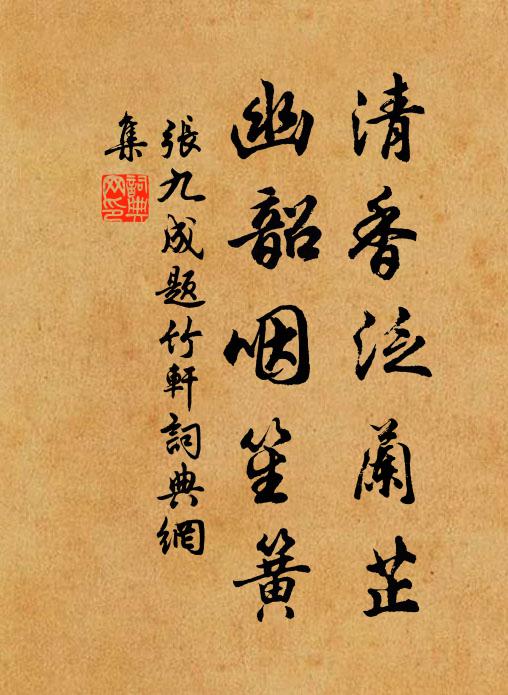 清香泛蘭芷
幽韶咽笙簧
張九成題竹軒詞典網
集
詞典
网印